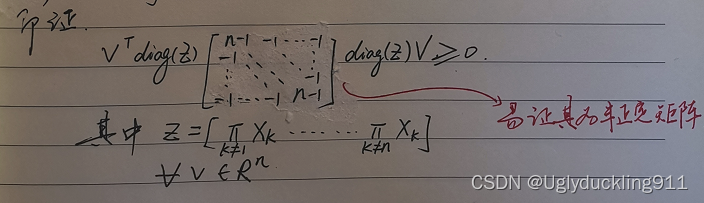 即证.
V^T diag(z) [ n-1 -1 ---- -1
-1
-1
-1 ---- -1 n-1 ] diag(z) V ≥ 0.
易证其为半正定矩阵
其中 z = [ π_{k≠1} X_k ------ π_{k≠n} X_k ]
∀ v ∈ R^n.
CSDN @Uglyduckling911